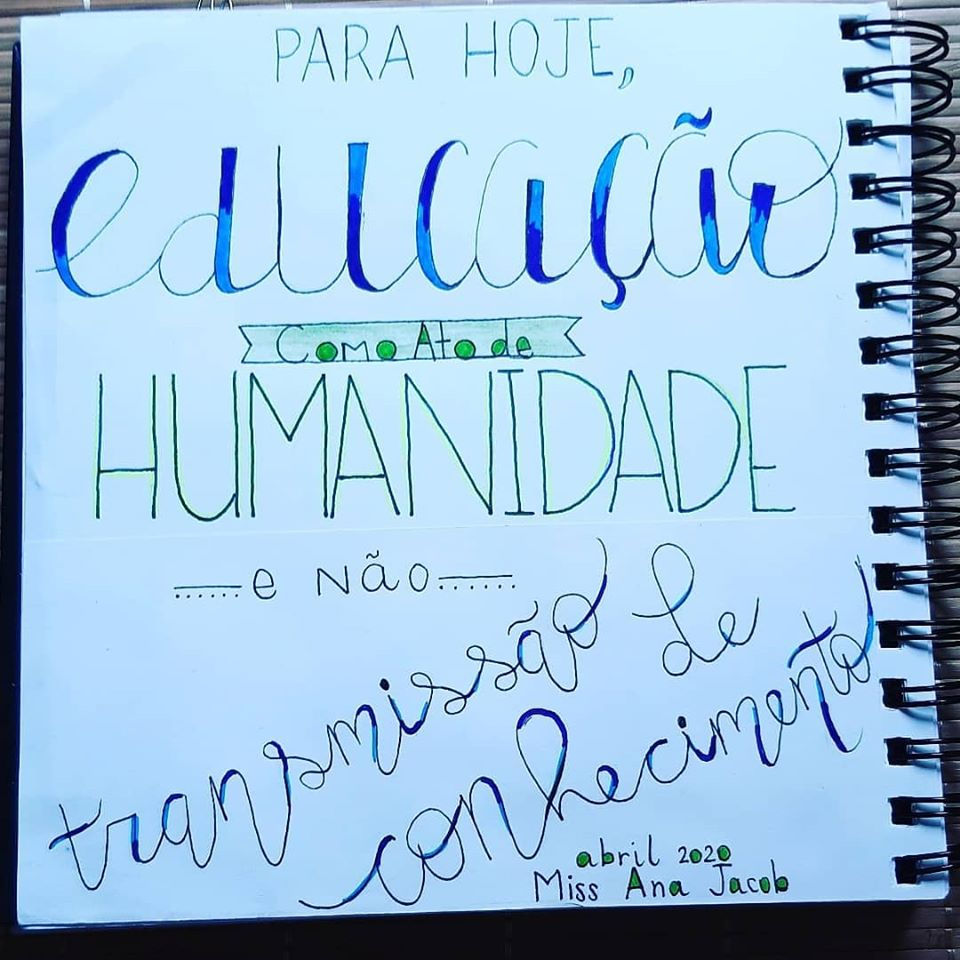 PARA HOJE,
educação
Como Ato de
HUMANIDADE
e Não
transmissão de
conhecimento
abril 2020
Miss Ana Jacob